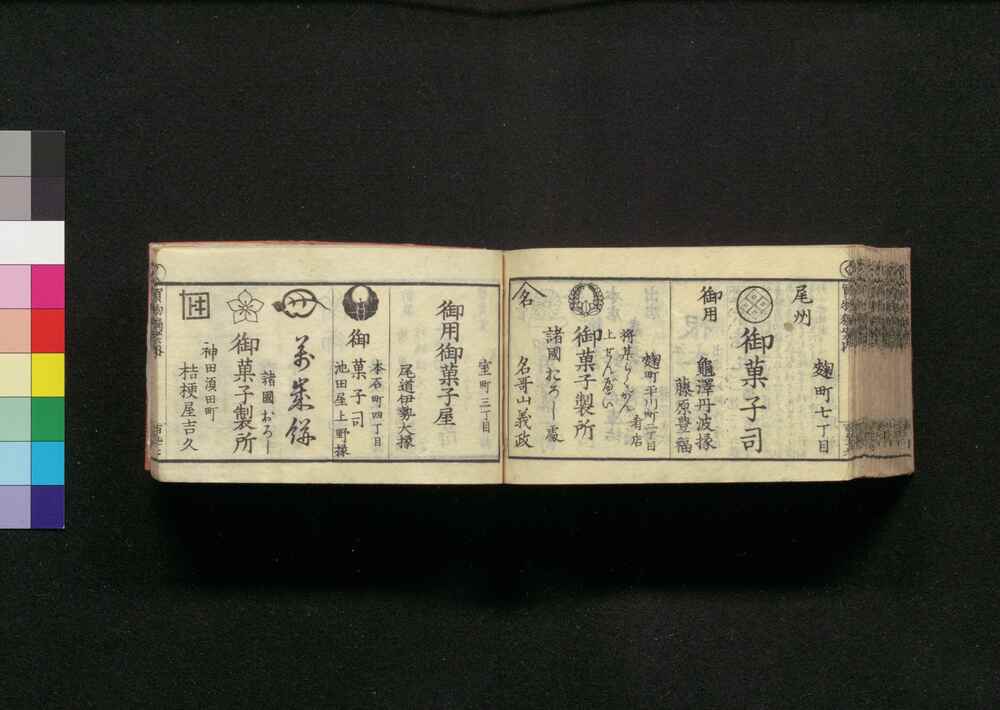 麹町七丁目
尾州
御菓子司
御用
龜澤丹波掾
藤原豊福
麹町平川町二丁目
肴店
将棊らくがん
上せんべい
御菓子製所
諸國おろし處
名
名哥山義政
室町三丁目
御用御菓子屋
尾道伊勢大掾
本石町四丁目
御菓子司
池田屋上野掾
万歳餅
諸國おろし
御菓子製所
神田須田町
桔梗屋吉久